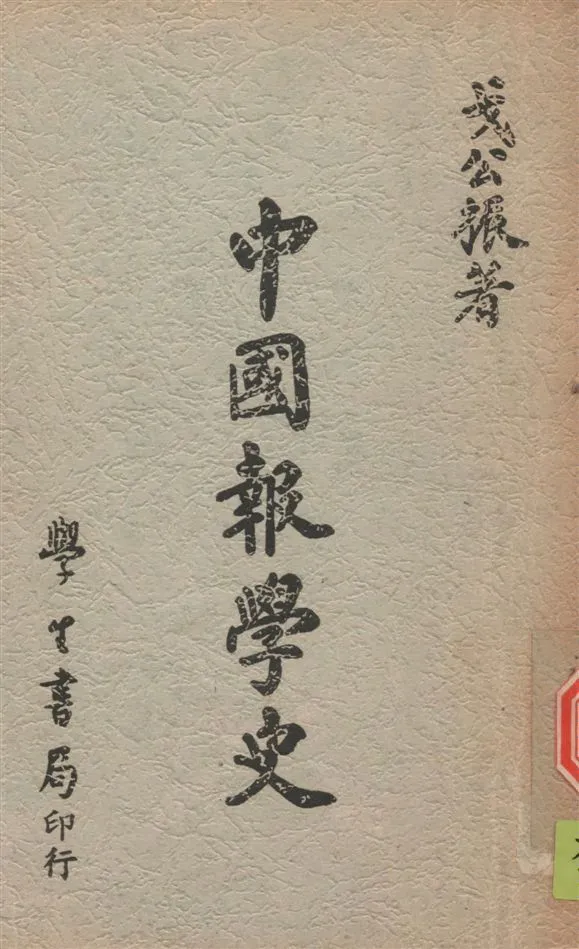 戈公振著
中國報學史
學生書局印行